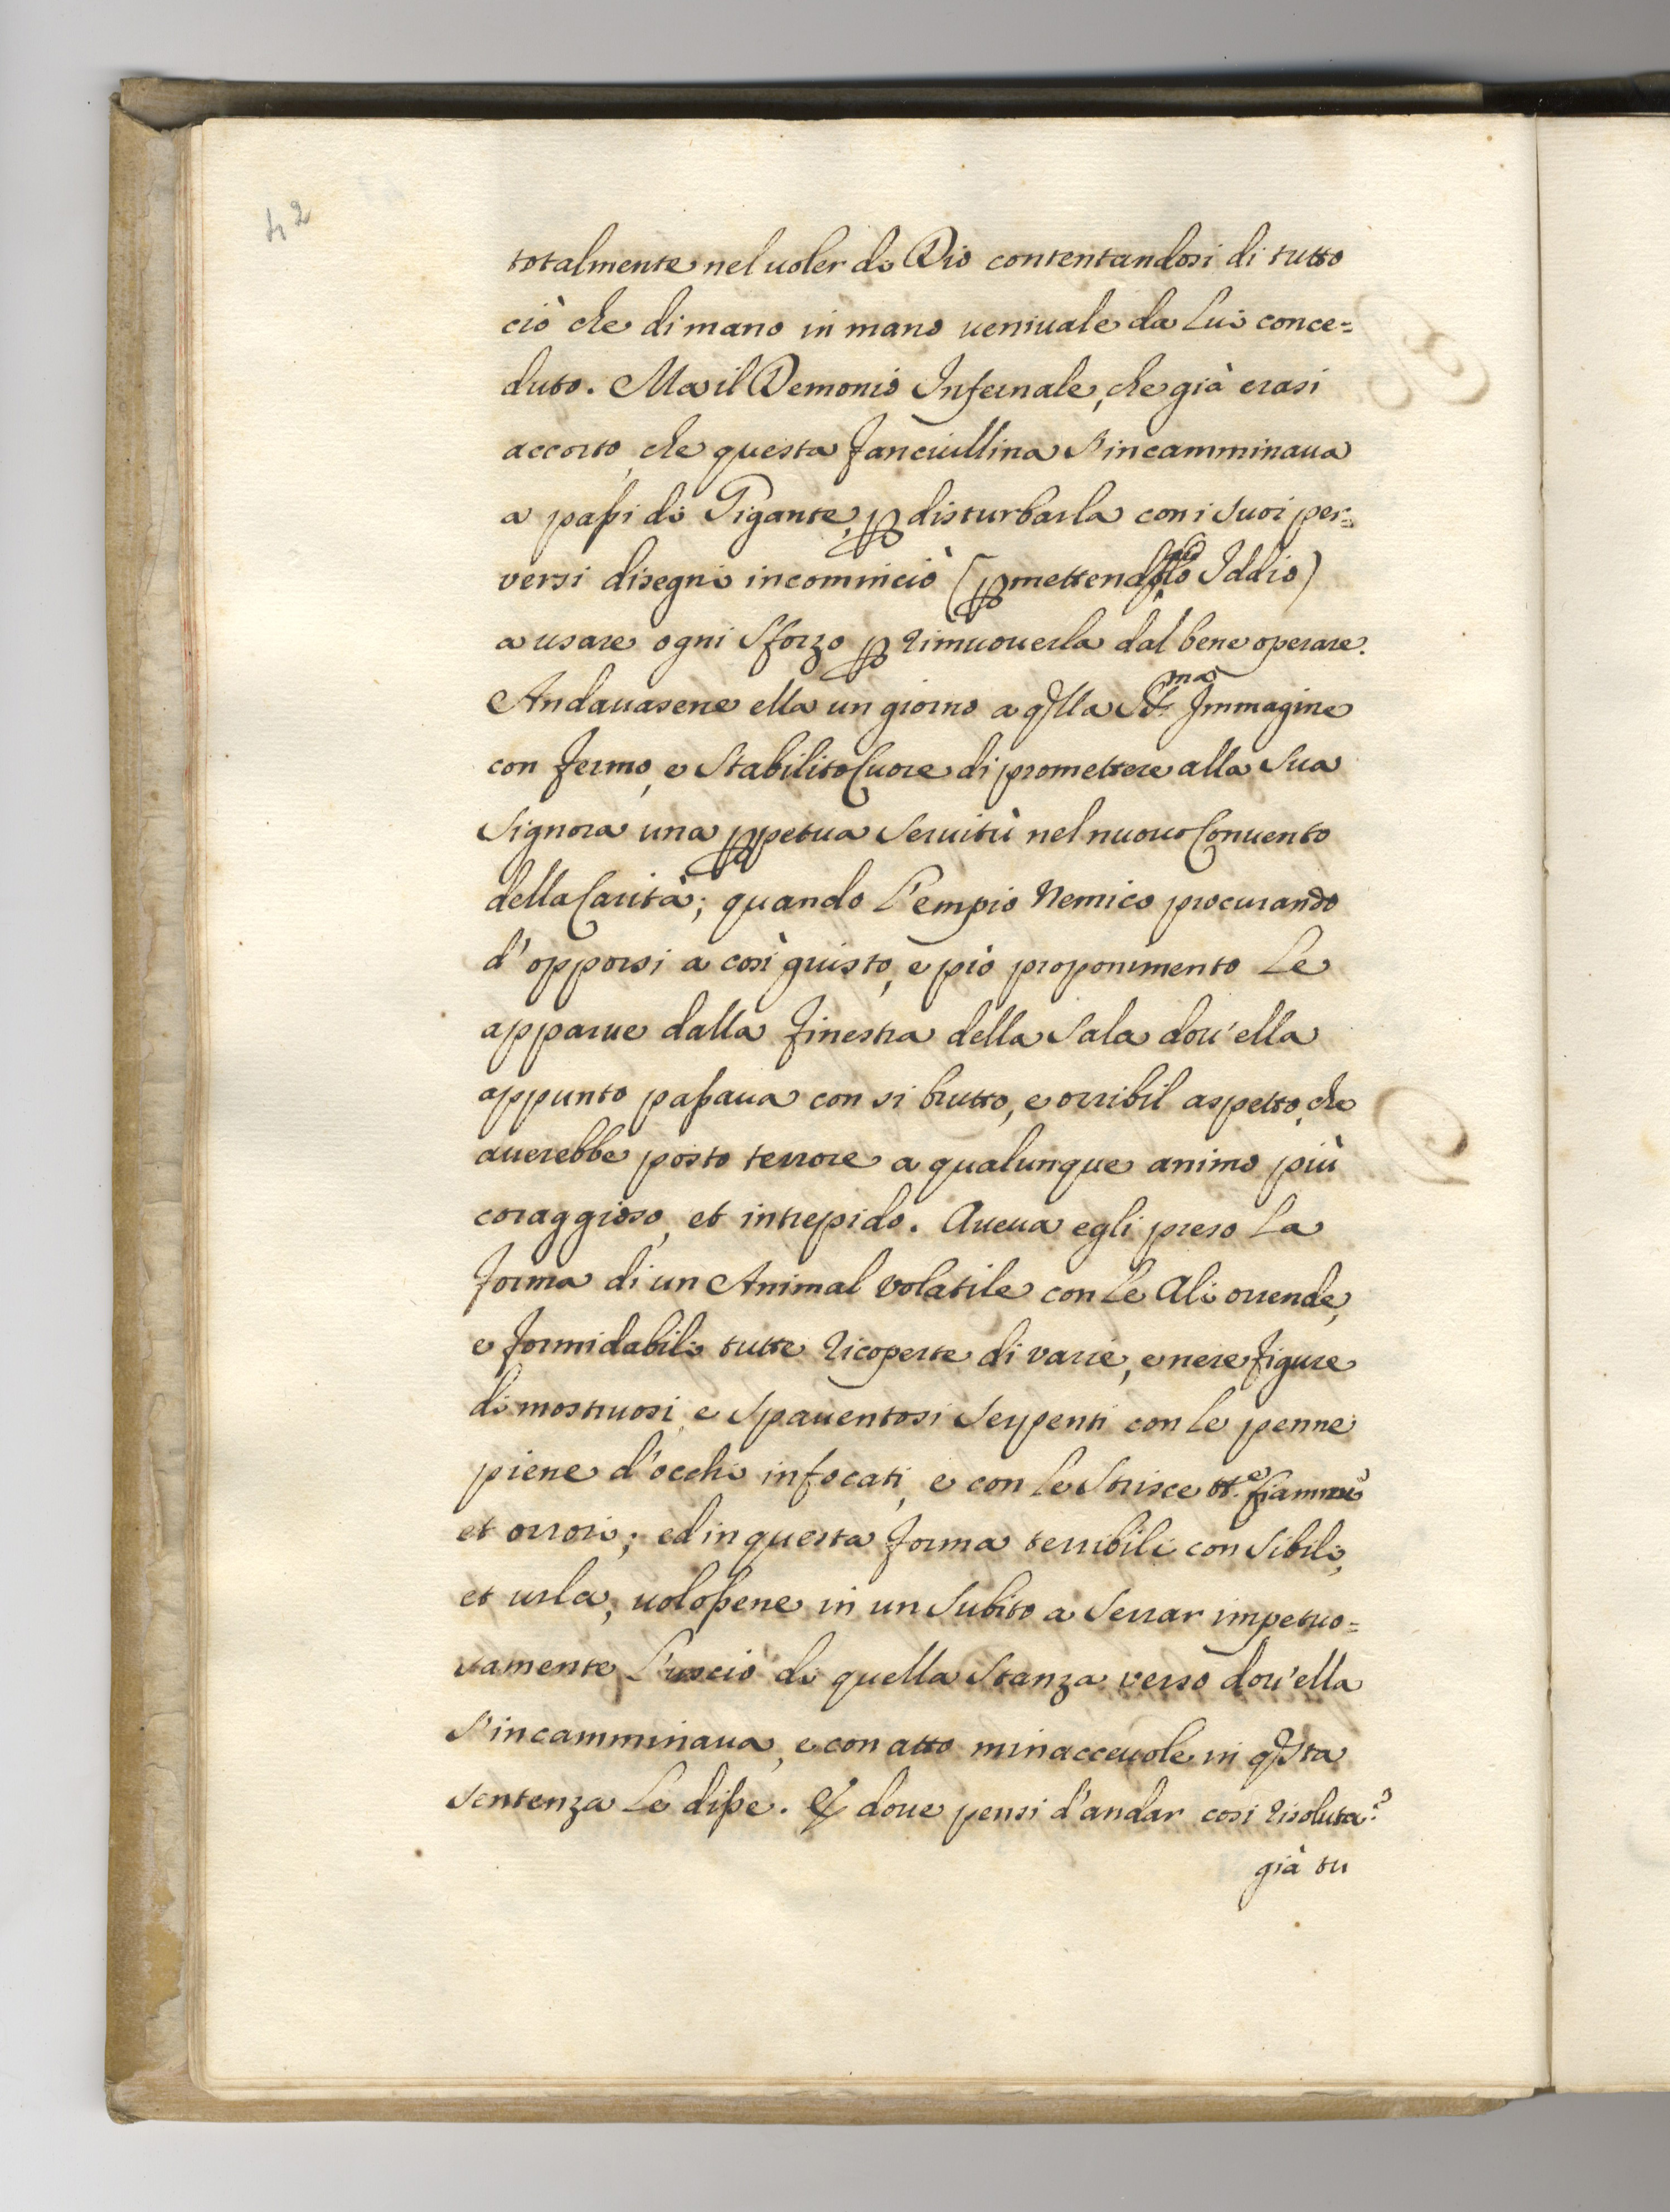 42
totalmente nel uoler di Dio contentandosi di tutto
ciò che di mano in mano ueniuale da Lui conce=
duto. Ma il Demonio Infernale, che già erasi
accorto, che questa fanciullina s'incamminaua
a passi di Gigante, ꝑ disturbarla con i suoi per=
versi disegni incominciò (ꝑmettendo Iddio)
a usare ogni sforzo ꝑ rimuouerla dal bene operare.
Andauasene ella un giorno a qlla SSma Immagine
con fermo, e stabilito Cuore di promettere alla sua
Signora una ꝑpetua seruitù nel nuouo Conuento
della Carità; quando l'empio Nemico procurando
d'opporsi a così giusto, e pio proponimento le
apparue dalla finestra della sala dou'ella
appunto passaua con si brutto, e orribil aspetto, che
auerebbe posto terrore a qualunque animo più
coraggioso, et intrepido. Aueua egli preso la
forma di un Animal volatile con le Ali orrende,
e formidabili tutte ricoperte di varie, e nere figure
di mostruosi, e spauentosi serpenti con le penne
piene d'occhi infocati, e con le strisce tt.e fiamme
et orrori; ed in questa forma terribili con sibili,
et urla, uolossene in un subito a serrar impetuo=
samente l'uscio di quella stanza verso dou'ella
s'incamminaua, e con atto minacceuole in qsta
sentenza le disse. E doue pensi d'andar cosi risoluta?
già tu